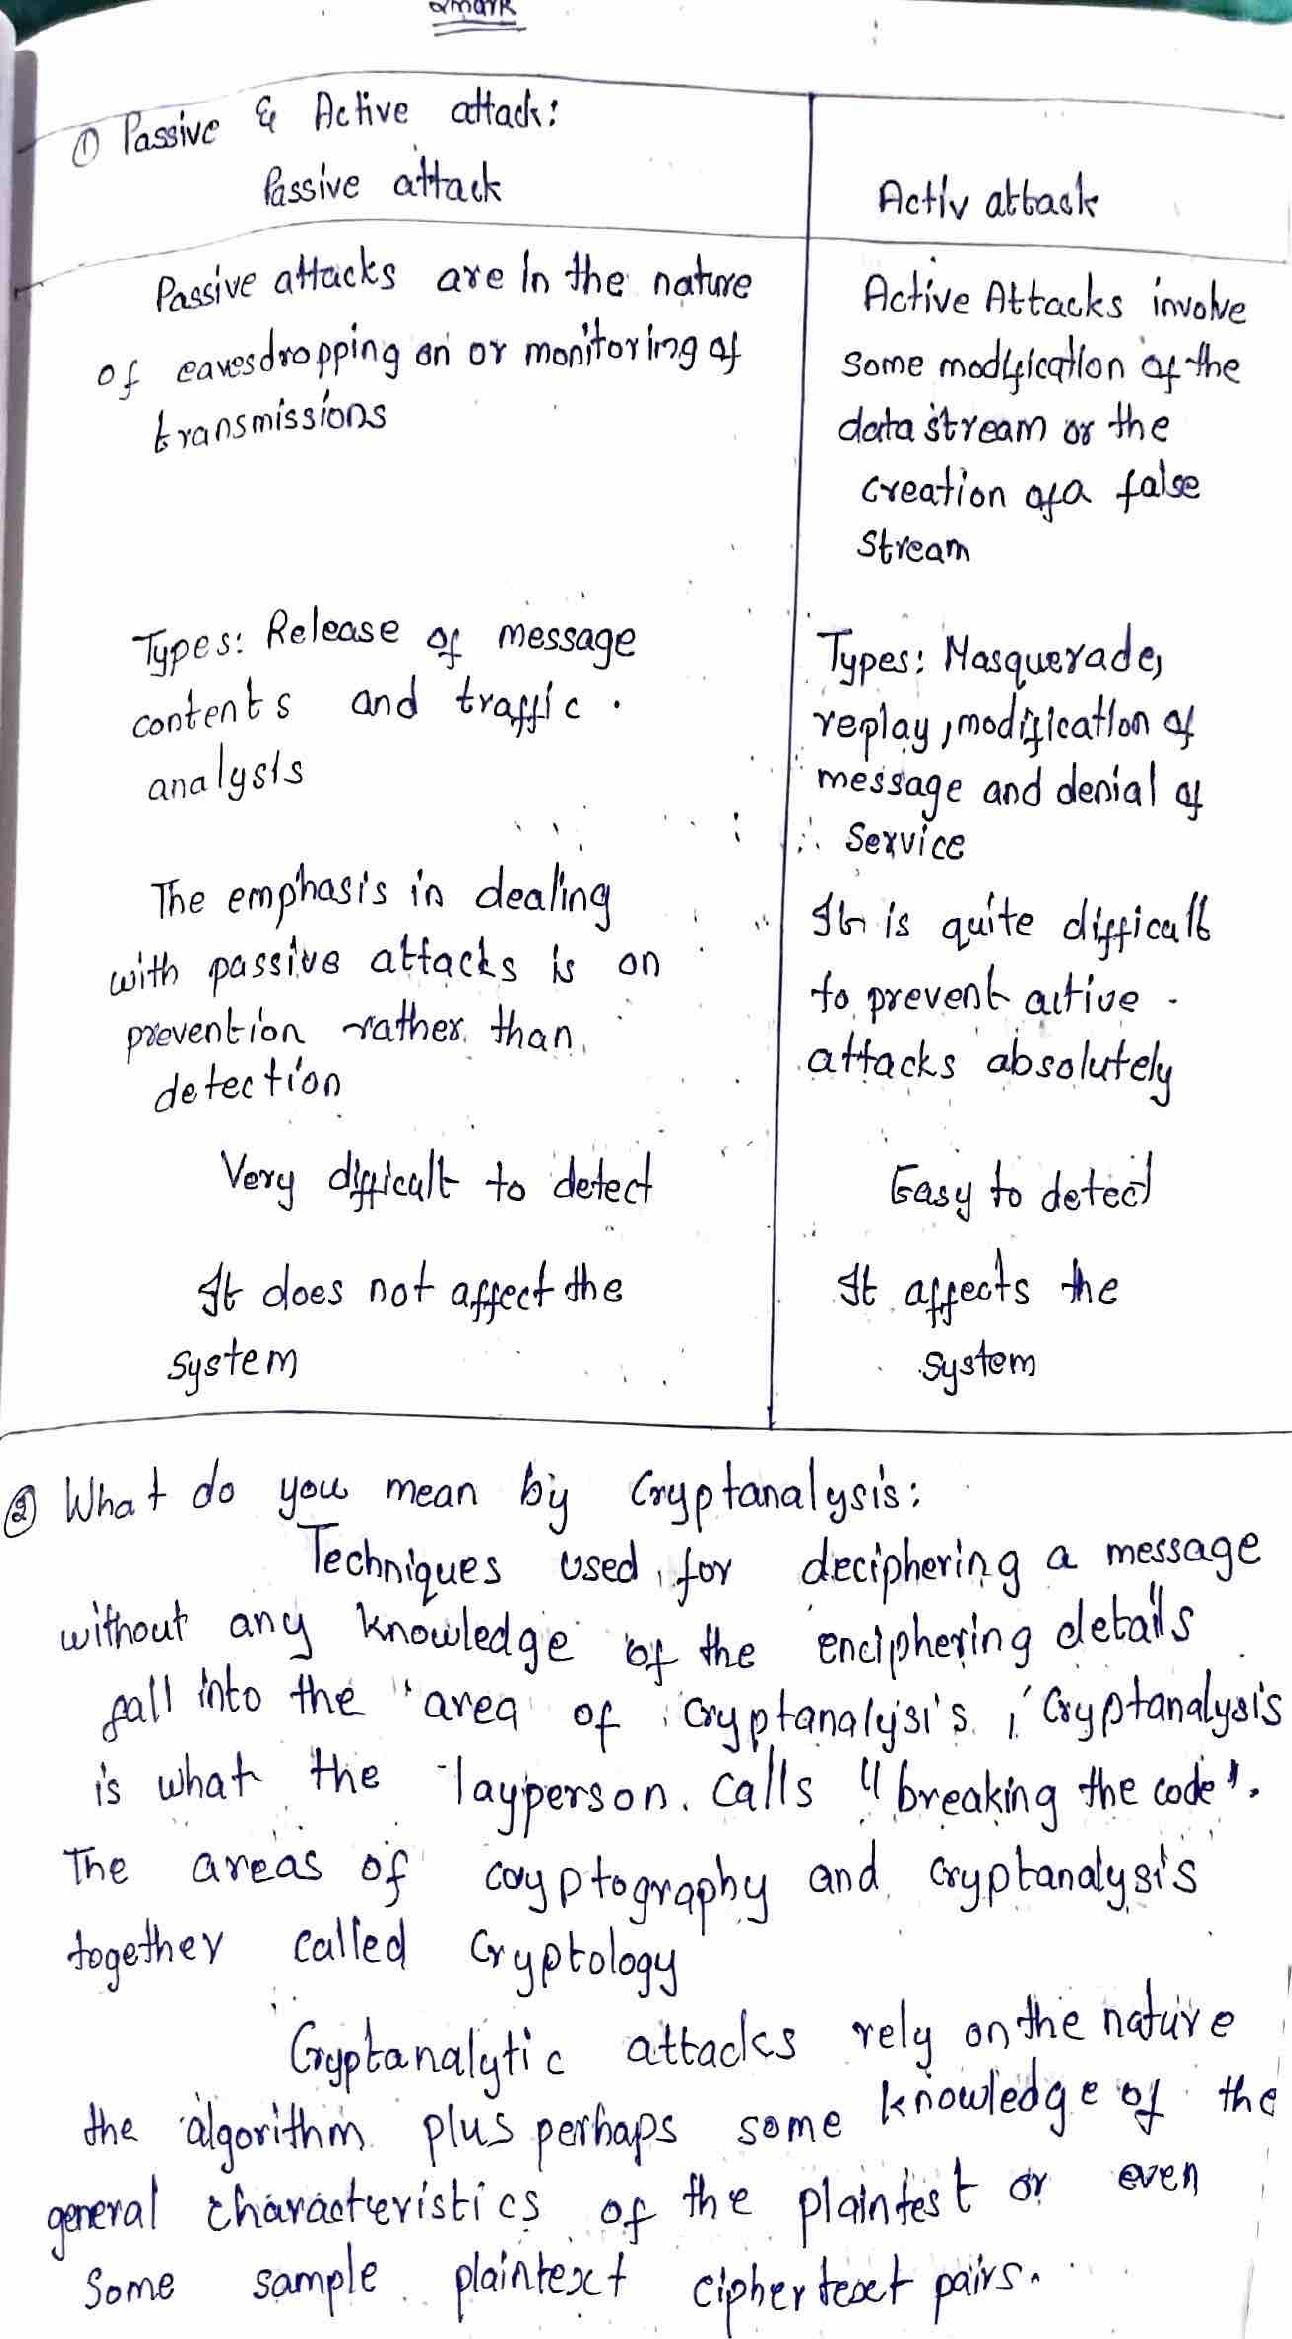 2mark
① Passive & Active attack:
Passive attack
Activ attack
Passive attacks are in the nature
of eavesdropping on or monitoring of
transmissions
Active Attacks involve
some modification of the
data stream or the
creation of a false
stream
Types: Release of message
contents and traffic.
analysis
Types: Masquerade,
replay, modification of
message and denial of
Service
The emphasis in dealing
with passive attacks is on
prevention rather than
detection
It is quite difficult
to prevent active
attacks absolutely
Very difficult to detect
Easy to detect
It does not affect the
system
It affects the
system
② What do you mean by Cryptanalysis:
Techniques used for deciphering a message
without any knowledge of the enciphering details
fall into the area of cryptanalysis, Cryptanalysis
is what the layperson calls "breaking the code".
The areas of cryptography and cryptanalysis
together called Cryptology
Cryptanalytic attacks rely on the nature
the algorithm plus perhaps some knowledge of the
general characteristics of the plaintest or even
Some sample plaintext ciphertext pairs.